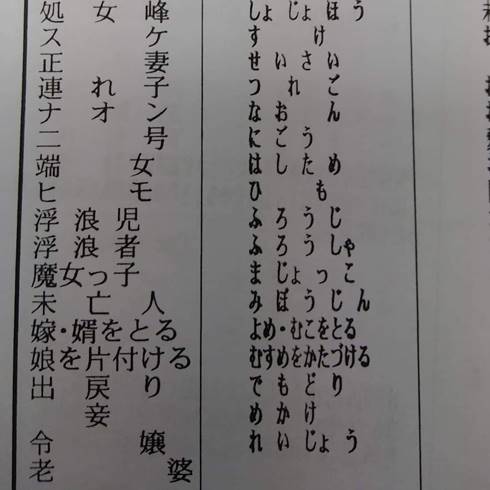 処女峰 しょじょほう
スケ すけ
正妻 せいさい
連れ子 つれご
ナオン なおん
二号 にごう
端女 はしため
ヒモ ひも
浮浪児 ふろうじ
浮浪者 ふろうしゃ
魔女っ子 まじょっこ
未亡人 みぼうじん
嫁・婿をとる よめ・むこをとる
娘を片付ける むすめをかたづける
出戻り でもどり
妾 めかけ
令嬢 れいじょう
老婆